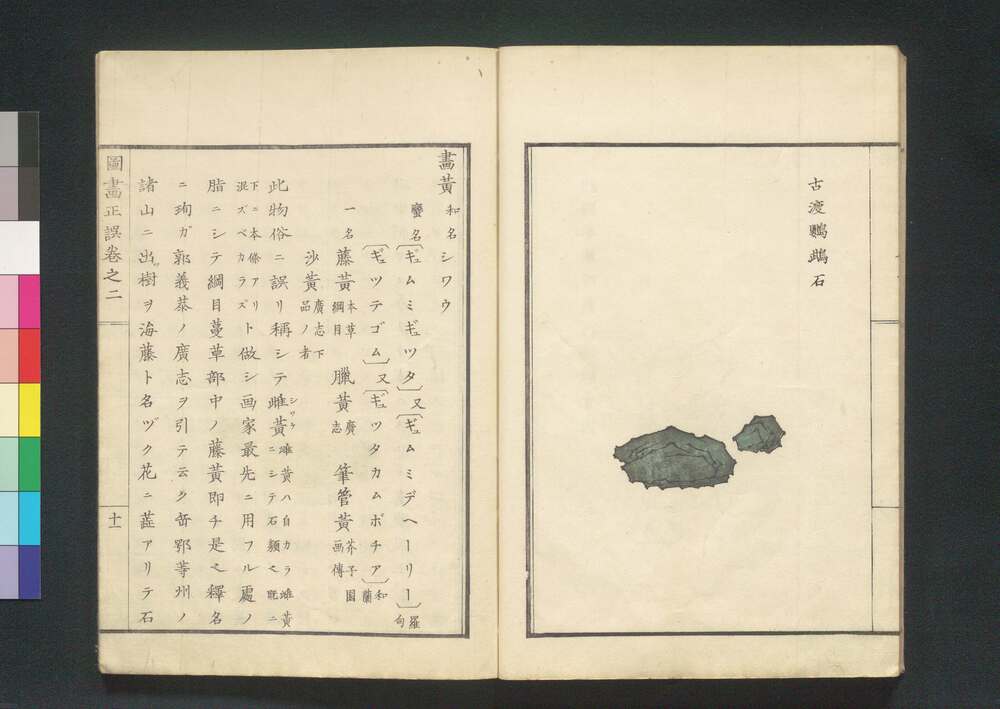 古渡鸚鵡石
畵黄 和名シワウ
蠻名〔ギュムミギュツタ〕又〔ギュムミデヘーリー〕羅甸
〔ギュツテゴム〕又〔ギュツタカムボチア〕和蘭
一名 藤黄 本草綱目 臘黄 廣志 筆管黄 芥子園画傳
沙黄 廣志下品ノ者
此物俗ニ誤リ稱シテ雌黄シワウ 雌黄ハ自カラ雌黄ニシテ石類ベ既ニ
下ニ本條アリ混ズベカラズ ト做シ画家最先ニ用フル處ノ
脂ニシテ綱目蔓草部中ノ藤黄即チ是ベ釋名
ニ珣ガ郭義恭ノ廣志ヲ引テ云ク岳鄂等州ノ
諸山ニ出樹ヲ海藤ト名ヅク花ニ蕋アリテ石
圖畫正誤卷之二
十一